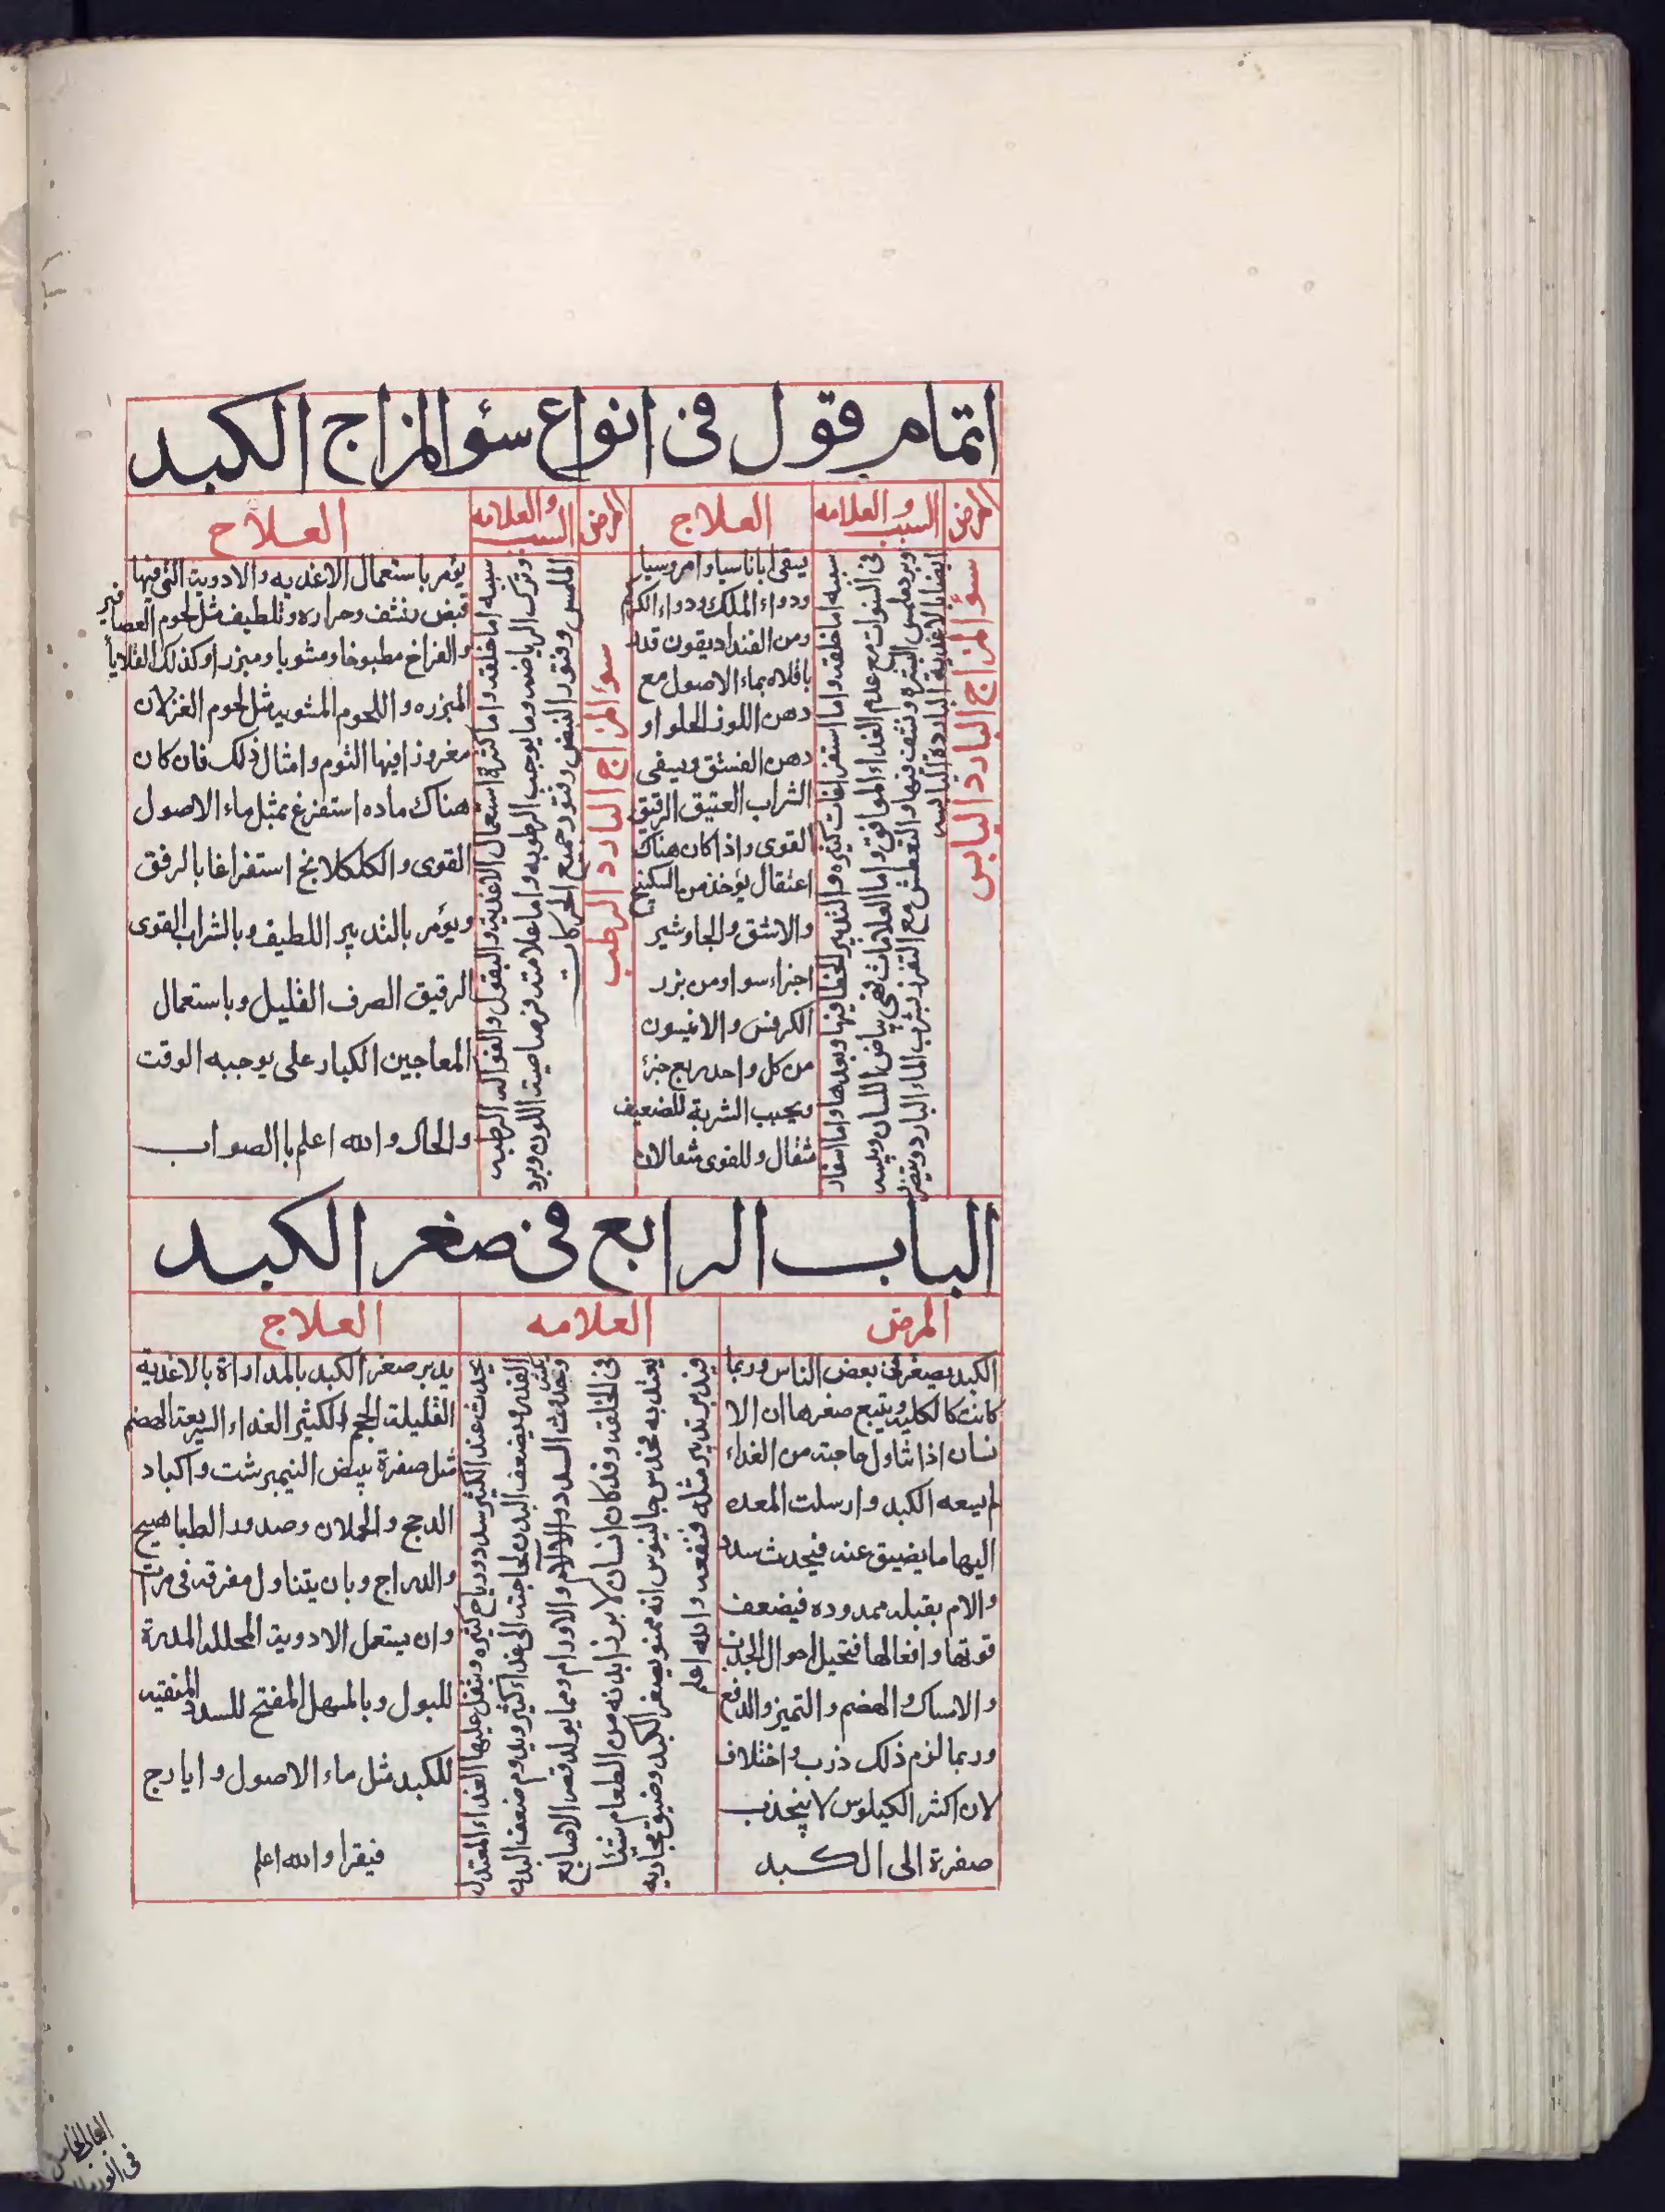 اتمام قول فى انواع سؤ المزاج الكبد
المرض
السبب والعلامه
العلاج
المرض
السبب والعلامه
العلاج
سؤ المزاج البارد اليابس
سببه اما خلقه واما استفراغات كثيره والتدبير الخطا فيها وبعدها واما اسفار
فى السنوات مع عدم الغداء الموافق واما العلامات فهى بياض اللسان ويبسه
وبرد ملمس البشره ونتف فيها والتعطش مع التفزز بشرب الماء البارد ويتضرر
ايضا بالاغدية الباردة اليابسه
يبقى اباناسيا وامروسيا
ودواء الملك ودواء الكركم
ومن الغندا ديقون قدر
باقلاه بماء الاصول مع
دهن اللوز الحلو او
دهن الفستق ويسقى
الشراب العتيق الرقيق
القوى واذا كان هناك
اعتقال يؤخذ من السكبينج
والاشق والجاوشير
اجزاء سوا ومن بزر
الكرفس والانيسون
من كل واحد ربع جزئ
ويحبب الشربة للضعيف
مثقال وللقوى مثقالان
سؤ المزاج البارد الرطب
سببه اما خلقه واما كثرة استعمال الاغدية والبقول والفواكه الرطبه
وترك الرياضه وما يوجب الرطوبه واما علامته فرصاصية اللون وبرد
الملمس وفتور النبض وفتور جميع الحركات
يؤمر باستعمال الاغديه والادوية التى فيها
قبض ونشف وحراره وتلطيف مثل لحوم العصافير
والفراخ مطبوخا ومشويا ومبزرا وكذلك القلايا
المبزره واللحوم المشويه مثل لحوم الغزلان
مغروزا فيها الثوم وامثال ذلك فان كان
هناك ماده استفرغ بمثل ماء الاصول
القوى والكلكلانج استفراغا بالرفق
ويؤمر بالتدبير اللطيف وبالشراب القوى
الرقيق الصرف القليل وباستعمال
المعاجين الكبار على يوجبه الوقت
والحال والله اعلم باالصواب
الباب الرابع فى صغر الكبد
المرض
العلامه
العلاج
الكبد يصغر فى بعض الناس وربما
كانت كالكليه ويتبع صغرها ان الا
نسان اذا تناول حاجته من الغداء
لم يسعه الكبد وارسلت المعده
اليها ما يضيق عنه فيحدث سدد
والام بقبله ممدوده فيضعف
قوتها وافعالها فتحيل احوال الجذب
والامساك والهضم والتميز والدفع
وربما لزم ذلك ذرب واختلاف
لان اكثر الكيلوس لا ينجذب
صفرة الى الكبد
يحدث عند الكثير سدد ورياح كثيره وثقل عليها الغداء المعتدل
القدر ويضعف البدن لحاجته الى غداء كثير ويدوم ضعف البدن
ويحدث السدد والالام والاورام ومما يولد قصر الاصابع
فى الخلقه وقد كان انسان لا يرزا بدنه من الطعام شيئا
يعتد به فحدس جالينوس انه ممنو بصغر الكبد وضيق مجاريه
فدبر تدبير مثله فنفعه والله اعلم
يدبر صغر الكبد بالمداراة بالاغدية
القليلة الحجم الكثير الغداء السريعة الهضم
مثل صفرة بيض النيمبرشت واكباد
الدجج والحملان وصدور الطباهيج
والدراج وبان يتناول مفرقه فى مرات
وان يستعمل الادوية المحلله المدرة
للبول وبالمسهل المفتح للسدد المنقيه
للكبد مثل ماء الاصول وايارج
فيقرا والله اعلم